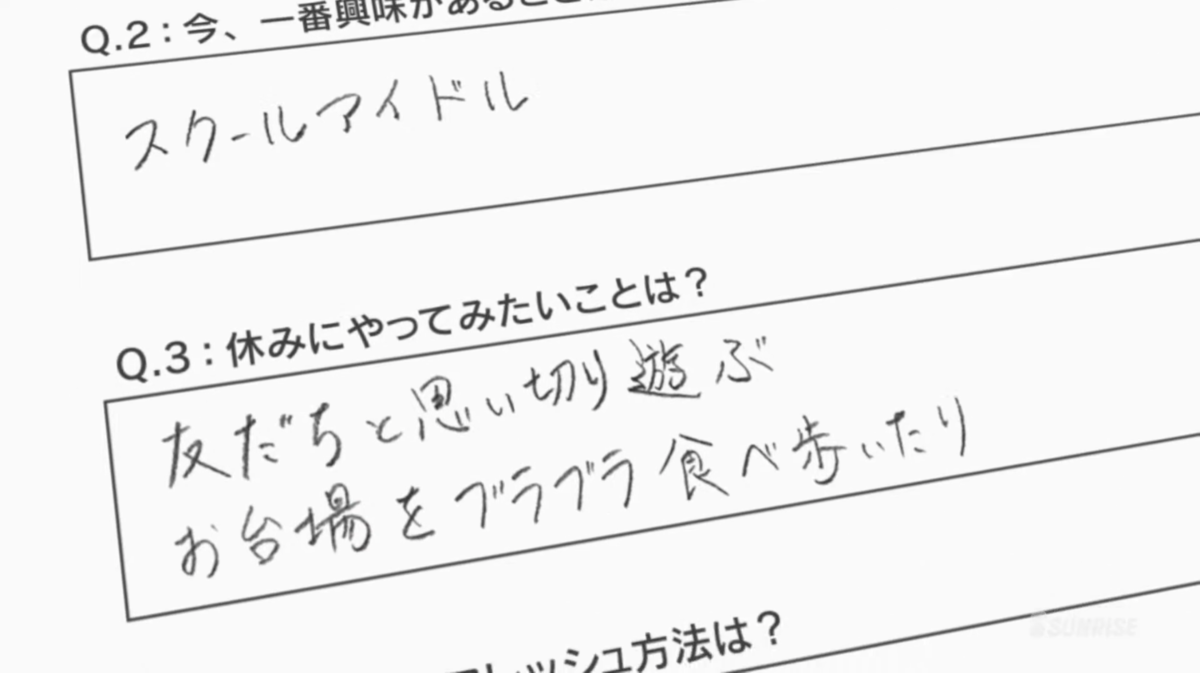 Q.2：今、一番興味がある
スクールアイドル
Q.3：休みにやってみたいことは？
友だちと思い切り遊ぶ
お台場をブラブラ食べ歩いたり
レッシュ方法は？
SUNRISE